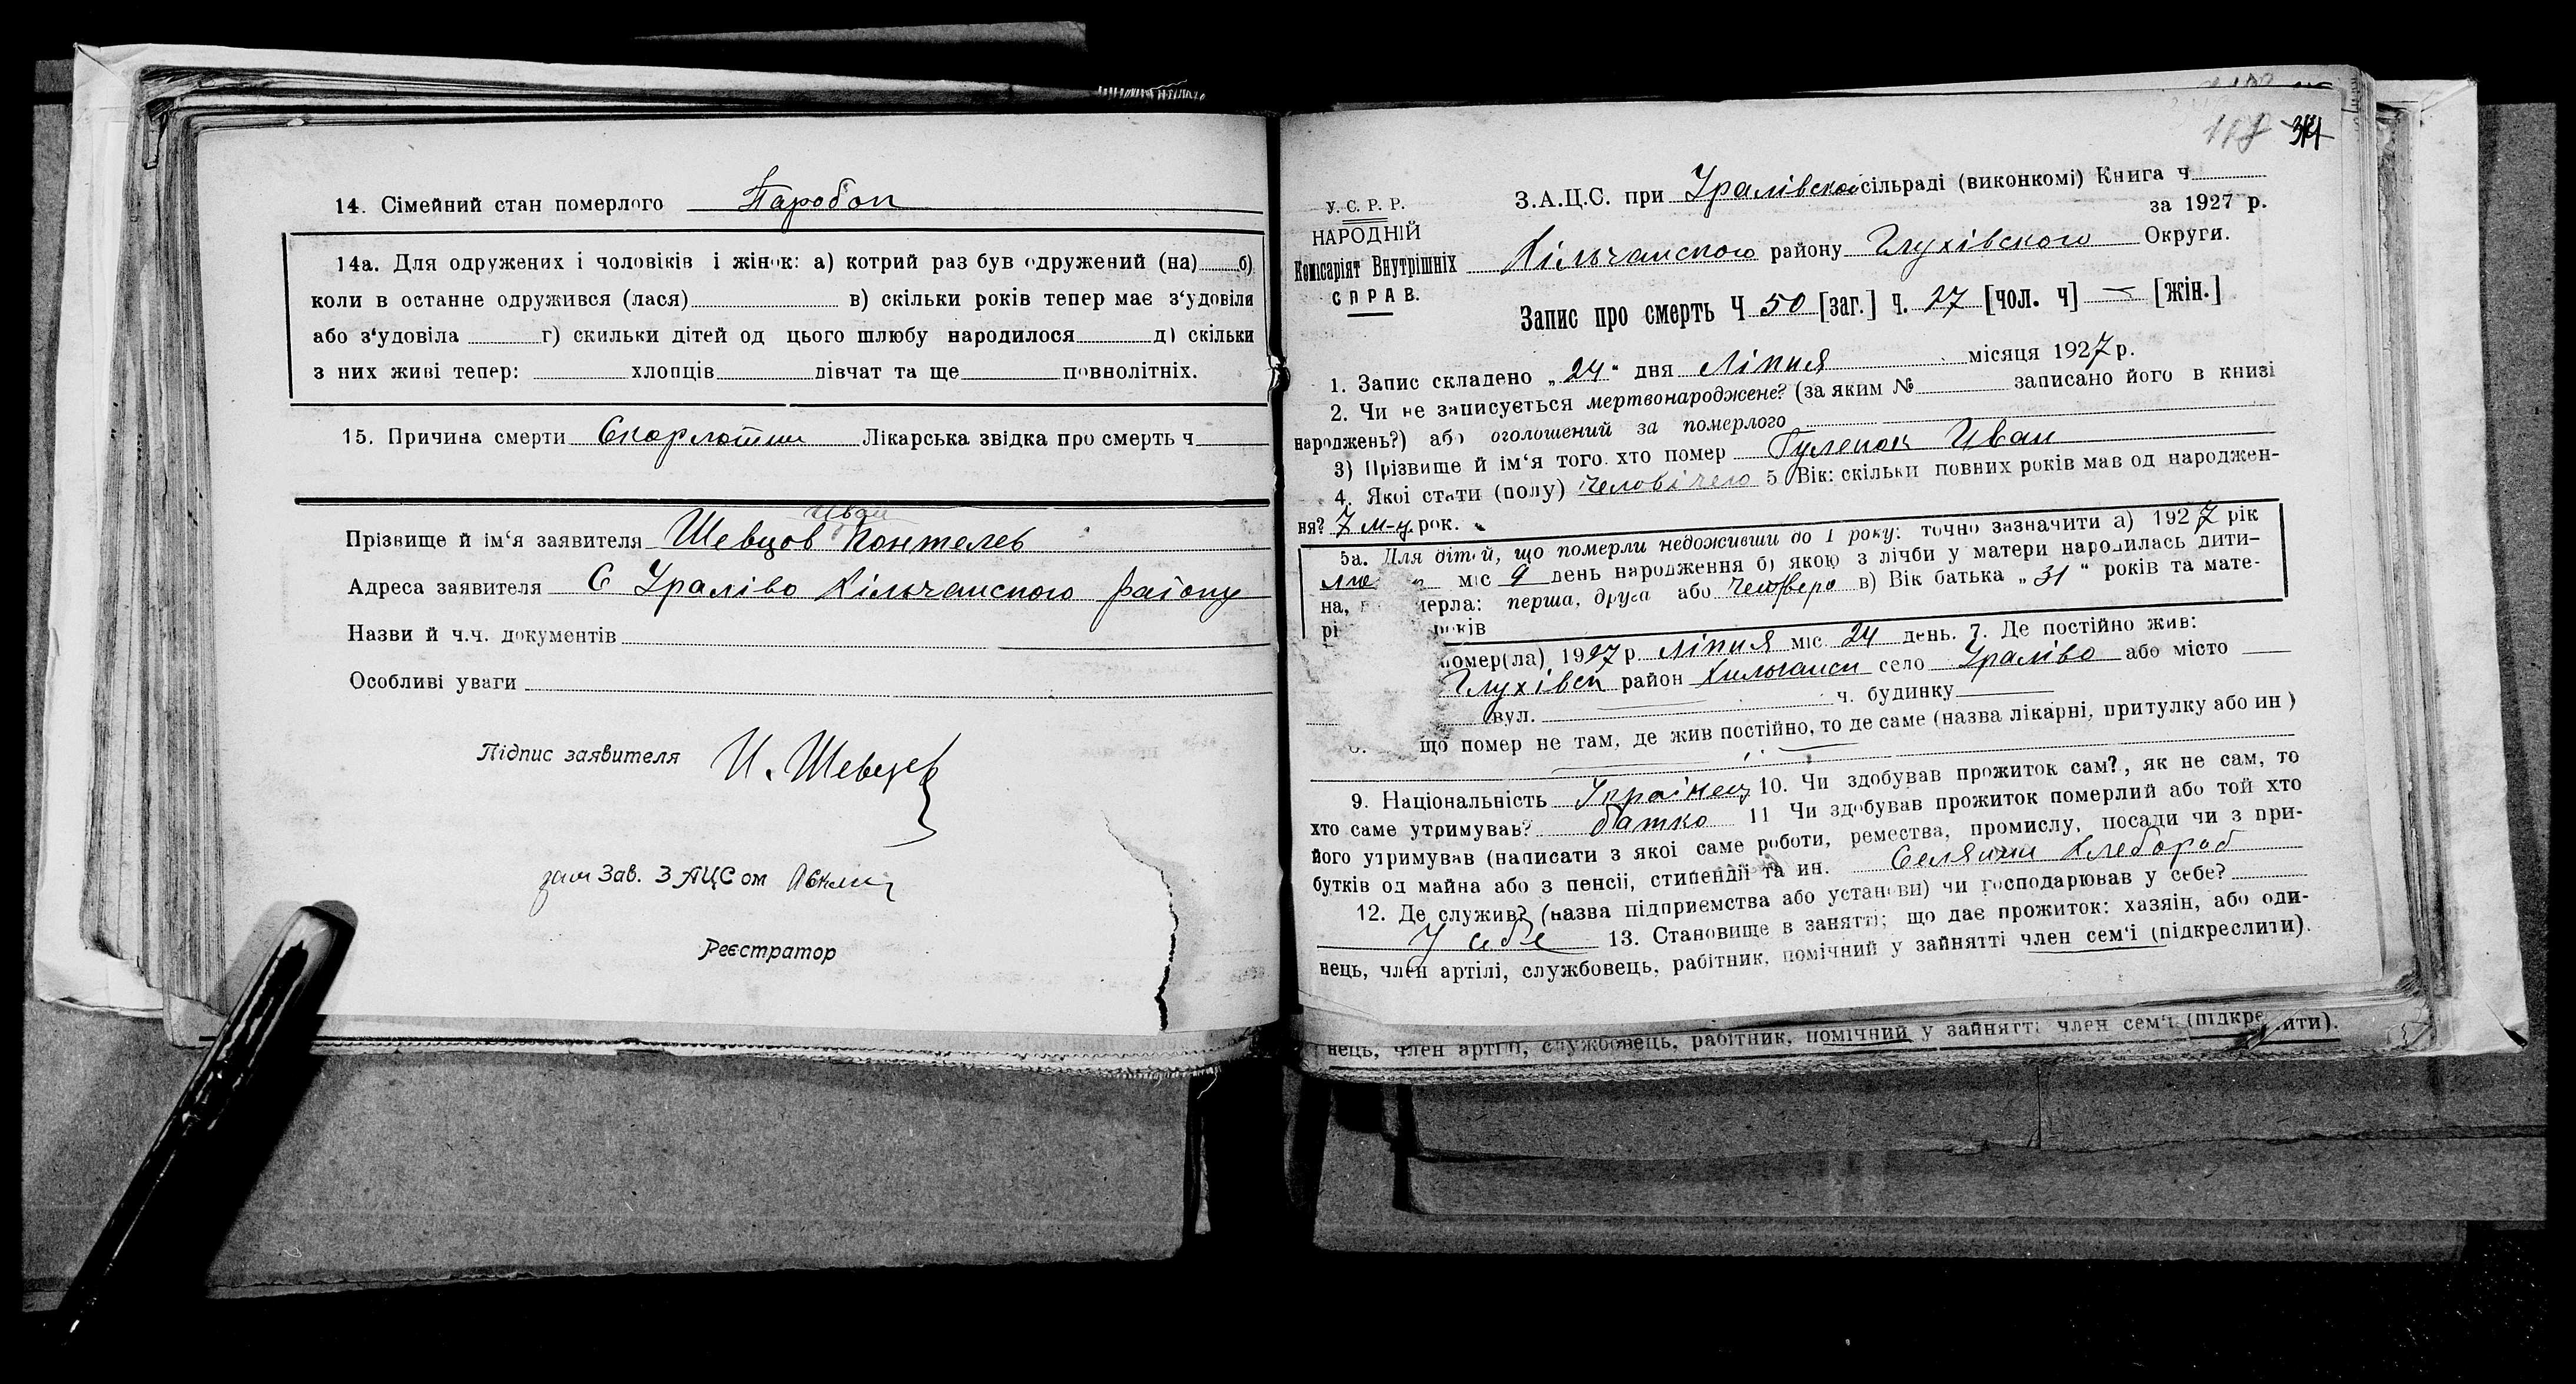 14. Сімейний стан померлого Паробок
14а. Для одружених і чоловіків і жінок: а) котрий раз був одружений (на) б)
коли в останне одружився (лася) в) скільки років тепер має з‘удовіля
або з‘удовіла г) скильки дітей од цього шлюбу народилося д) скільки
з них живі тепер: хлопців дівчат та ще повнолітніх.
15. Причина смерти Скарлотини Лікарська звідка про смерть ч
Иван
Прізвище й ім‘я заявителя Шевцов Понтелев
Адреса заявителя С Ураліво Хільчанского району
Назви й ч.ч. документів
Особливі уваги
Підпис заявителя И. Шевцов
зам Зав. ЗАЦСом
Реєстратор
118 34
У. С. Р. Р.
НАРОДНІЙ
Комісаріят Внутрішніх
СПРАВ.
З.А.Ц.С. при Уралівской сільраді (виконкомі) Книга ч
за 1927 р.
Хільчанского району Глухівского Округи.
Запис про смерть Ч 50 [заг.] ч. 27 [чол. ч] — [жін.]
1. Запис складено „24“ дня Ліпня місяця 1927 р.
2. Чи не записується мертвонароджене? (за яким № записано його в книзі
народжень?) або оголошений за померлого
3) Прізвище й ім‘я того. хто помер Гуленок Иван
4. Якої стати (полу) Человічего 5 Вік: скільки повних років мав од народжен-
ня? 7 м-ц. рок.
5а. Для дітей, що померли недоживши до 1 року: точно зазначити а) 1927 рік
міс 9 день народження б) якою з лічби у матери народилась дити-
на, мерла: перша, друга або Четверо в) Вік батька „31“ років та мате-
рі років
помер(ла) 1927 р. ліпня міс 24 день. 7. Де постійно жив:
Глухівск район Хильчанск село Ураліво або місто
вул. ч. будинку
що помер не там, де жив постійно, то де саме (назва лікарні, притулку або ин)
9. Національність Українец 10. Чи здобував прожиток сам?, як не сам, то
хто саме утримував? батко 11 Чи здобував прожиток померлий або той хто
його утримував (написати з якої саме роботи, ремества, промислу, посади чи з при-
бутків од майна або з пенсії, стипендії та ин. Селянин хлебороб
12. Де служив? (назва підприємства або установи) чи господарював у себе?
У себе 13. Становище в занятті; що дає прожиток: хазяін, або оди-
нець, член артілі, службовець, рабітник, помічний у зайнятті член сем‘ї (підкреслити).
нець, член артілі, службовець, рабітник, помічний у зайнятті член сем‘ї (підкре ити).